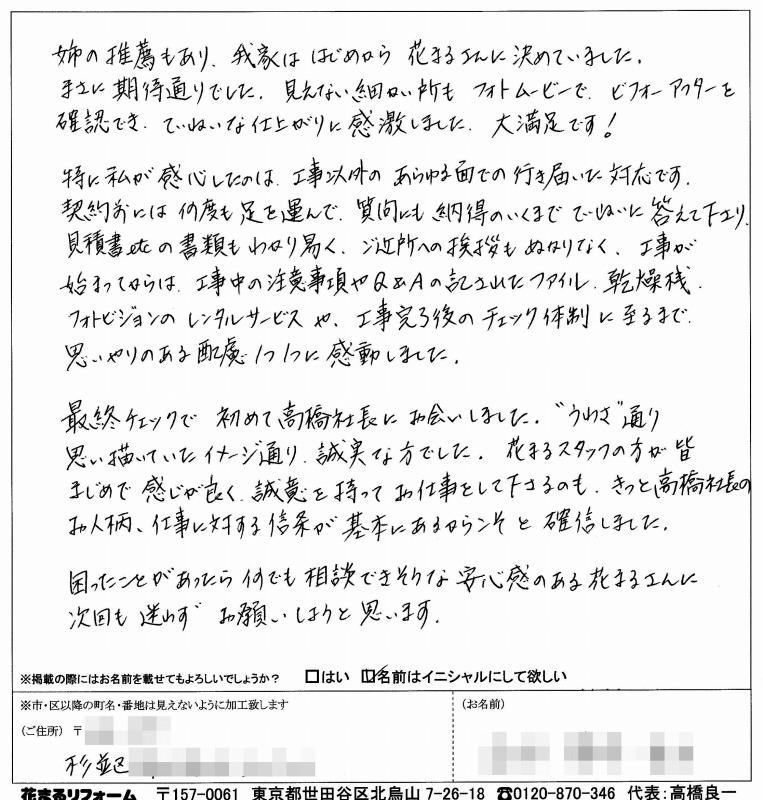 姉の推薦もあり、我家ははじめから花まるさんに決めていました。
まさに期待通りでした。見えない細かい所もフォトムービーで、ビフォーアフターを
確認でき、ていねいな仕上がりに感激しました。大満足です!
特に私が感心したのは、工事以外のあらゆる面での行き届いた対応です。
契約前には何度も足を運んで、質問にも納得のいくまでていねいに答えて下さり、
見積書etcの書類もわかり易く、ご近所への挨拶もぬかりなく、工事が
始まってからは、工事中の注意事項やQ&Aの記されたファイル、乾燥機、
フォトビジョンのレンタルサービスや、工事完了後のチェック体制に至るまで、
思いやりのある配慮1つ1つに感動しました。
最終チェックで初めて高橋社長にお会いしました。“うわさ”通り
思い描いていたイメージ通り、誠実な方でした。花まるスタッフの方が皆
まじめで感じが良く、誠意を持ってお仕事をして下さるのも、きっと高橋社長の
お人柄、仕事に対する信条が基本にあるからこそと確信しました。
困ったことがあったら何でも相談できそうな安心感のある花まるさんに
次回も迷わずお願いしようと思います。
※掲載の際にはお名前を載せてもよろしいでしょうか? □はい □名前はイニシャルにして欲しい
※市・区以降の町名・番地は見えないように加工致します
(お名前)
(ご住所) 〒
杉並区
花まるリフォーム 〒157-0061 東京都世田谷区北烏山7-26-18 ☎0120-870-346 代表:高橋良一